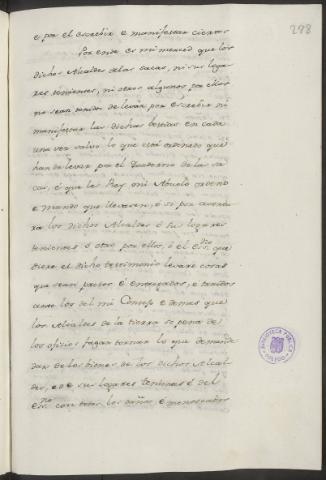 298
e por el escrebir e manifestar ciertas
Por ende es mi merced que los
dichos Alcaldes de las sacas, ni sus luga-
res tenientes, ni otros algunos por ellos
no sean tenidos de levar por escrebir ni
manifestar las dichas bestias en cada
una vez salvo lo que está ordenado que
han de levar por el Quaderno de las sa-
cas, é que el Rey mi Abuelo ordenó
e mandó que llevaren, é si por aventu-
ra los dichos Alcaldes é sus lugares
tenientes é otro por ellos, é el Ess.no que
diere el dicho testimonio levare cosas
que sean presos é entregados, e traidos
ante los del mi Consejo e demas que
los Alcaldes de la tierra so pena de
los oficios fagan tornar lo que deman-
dan de los bienes de los dichos Alcal-
des, e de sus lugares tenientes é del
Ess.no con todos los daños e menoscabos
BIBLIOTECA PUBLICA
TOLEDO